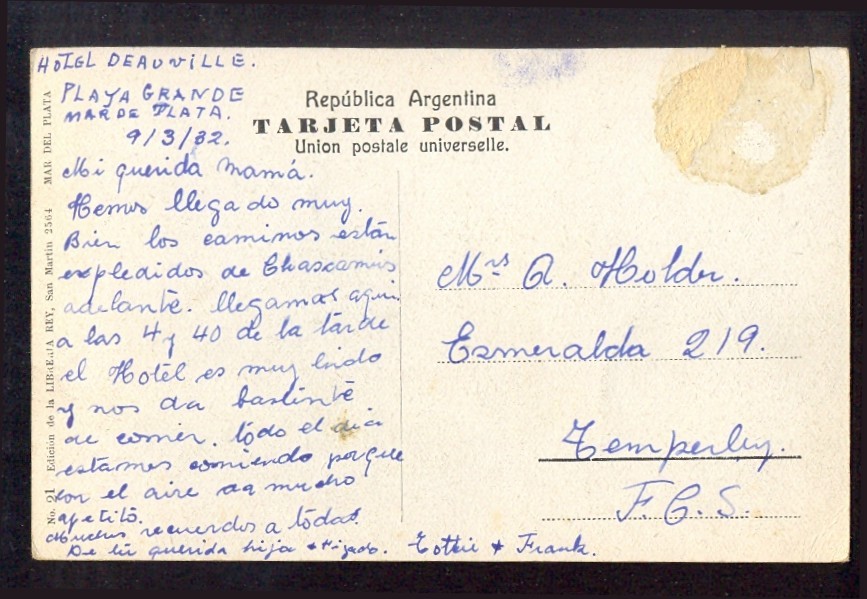 HOTEL DEAUVILLE.
PLAYA GRANDE
MAR DE PLATA.
9/3/32.
Mi querida mamá.
Hemos llegado muy.
Bien los caminos están
expledidos de Chascamus
adelante. llegamos aqui.
a las 4 y 40 de la tarde
el Hotel es muy lindo
y nos da bastente
de comer. todo el dia
estamos comiendo porque
con el aire da mucho
apetito.
Muchos recuerdos a todas.
De tu querida hija + hijado. Tottie + Frank.
República Argentina
TARJETA POSTAL
Union postale universelle.
Mrs A. Holder.
Esmeralda 219.
Temperley.
F.C.S.
No. 21 Edición de la LIBRERIA REY, San Martin 2564 MAR DEL PLATA